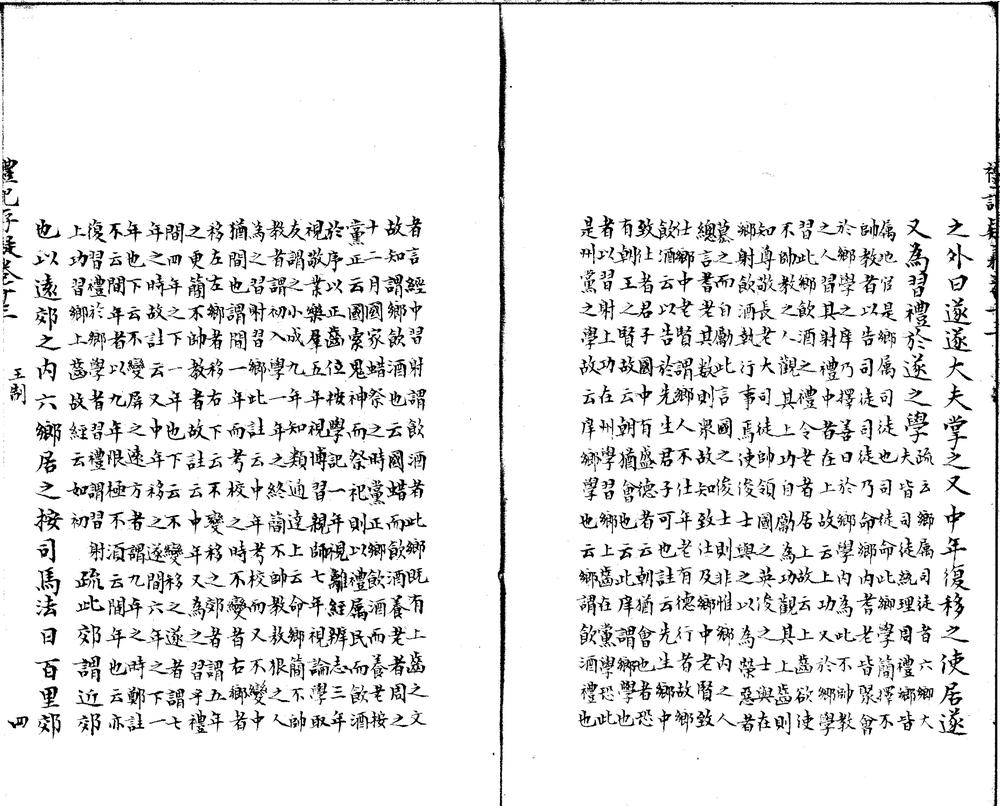 之外曰遂遂大夫掌之又中年復移之使居遂
又為習禮於遂之學
疏云鄉属司徒者六鄉大
夫皆司徒統理周禮鄉皆
属地官是鄉属司徒也司徒命此鄉學簡擇不
帥教者以告司徒司徒乃命鄉內耆老皆聚會
於鄉學之庠乃擇善日於鄉學內為此不帥教
之人習其射禮中者在上故云上功又於鄉學
習此鄉飲酒之禮令老者居上故云上齒欲使
不帥教之人觀其上功自勵為功觀其上齒則
知尊敬長老大司徒帥領國之英俊之士與在
鄉射飲酒執行事焉使俊士與之以為榮惡者
慕之而自勵
總言耆老其數則衆故知致仕及鄉中老賢致
仕鄉中老賢謂鄉人不仕年老有德行者故鄉
飲酒云以告於先生君子可也註云先生鄉中
致仕者君子國中有盛德者也
有朝王者賢故云朝猶會也
者以習射上功
是州黨之學故云庠鄉學也云鄉謂飲酒禮也此
者言經中習射謂飲酒者此鄉既有上齒之文
故知謂鄉飲酒也云國蜡而飲酒養老者周之
十二月國家蜡祭之時黨正以鄉飲酒而養老按
黨正云國索鬼神而祭祀則以禮属民而飲酒
於序以正齒位按學記一年視離經辨志三年
視敬業樂羣五年視博習親師七年視論學取
友謂之小成九年知類通達上云命鄉簡不帥
教者謂初入學一年之終簡不帥教狠之人
為之習射習鄉此註云中年考校而又不變中
猶間也謂間一年而考校之時不變者右鄉者
移左左鄉者移右故下云不變移之郊者謂五年
之更簡不帥教者下註云中年又為之習乎禮
間四年之下一年也下云不變移之遂者謂七
年之時故註云又中年移之遂間六年之下一
年也下云不變屏之遠方者謂九年之時鄭註
不云間年者以九年限極不須云間年也云亦
復習禮於鄉學者習禮謂習射
上功習鄉上齒故經云如初
疏此郊謂近郊
也以遠郊之內六鄉居之按司馬法曰百里郊
王制
四